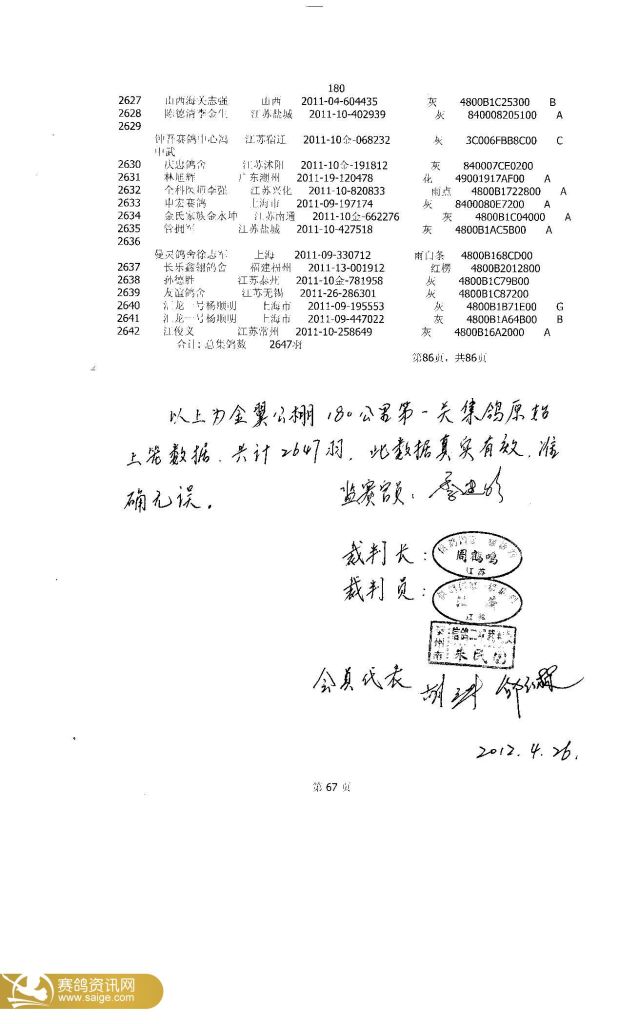 180
2627 山西海关志强 山西 2011-04-604435 灰 4800B1C25300 B
2628 陈德清李金生 江苏盐城 2011-10-402939 灰 840008205100 A
2629
钟吾赛鸽中心冯 江苏宿迁 2011-10全-068232 灰 3C006FBB8C00 C
中武
2630 庆忠鸽舍 江苏沭阳 2011-10全-191812 灰 840007CE0200
2631 林旭辉 广东潮州 2011-19-120478 花 49001917AF00 A
2632 全科医师李强 江苏兴化 2011-10-820833 雨点 4800B1722800 A
2633 申宏赛鸽 上海市 2011-09-197174 灰 8400080E7200 A
2634 金氏家族金永坤 江苏南通 2011-10全-662276 灰 4800B1C04000 A
2635 管拥军 江苏盐城 2011-10-427518 灰 4800B1AC5B00 A
2636
曼灵鸽舍徐志军 上海 2011-09-330712 雨白条 4800B168CD00
2637 长乐鑫翎鸽舍 福建福州 2011-13-001912 红楞 4800B2012800
2638 孙德胜 江苏泰州 2011-10全-781958 灰 4800B1C79B00
2639 友谊鸽舍 江苏无锡 2011-26-286301 灰 4800B1C87200
2640 汇龙一号杨顺明 上海市 2011-09-195553 灰 4800B1B71E00 G
2641 汇龙一号杨顺明 上海市 2011-09-447022 灰 4800B1A64B00 B
2642 江俊义 江苏常州 2011-10-258649 灰 4800B16A2000 A
合计: 总集鸽数 2647羽
第86页, 共86页
以上为金翼公棚180公里第一关集鸽原始
上笼数据, 共计2647羽, 此数据真实有效, 准
确无误。 监赛官员:
裁判长: 周鹤鸣
江苏
裁判员:
朱民
会员代表
2012.4.26.
第 67 页
赛鸽资讯网
www.saige.com